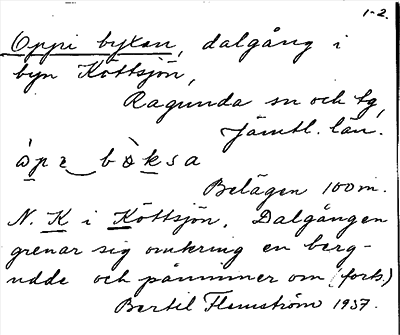 1-2.
Oppi byxan, dalgång i
byn Köttsjön,
Ragunda sn och tg,
Jämtl. län.
Belägen 100 m.
N. K i Köttsjön. Dalgången
grenar sig omkring en berg-
udde och påminner om (forts.)
Bertil Flemström 1937.